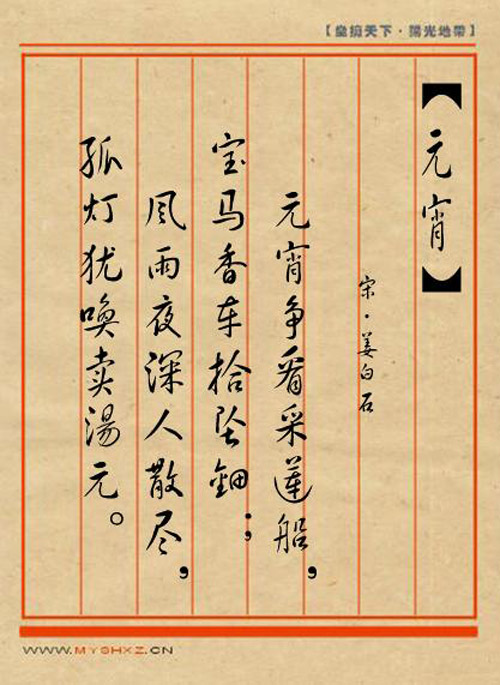 【堂摛天下·陽光地帶】
【元宵】
宋·姜白石
元宵争看采莲船，
宝马香车拾坠钿；
风雨夜深人散尽，
孤灯犹唤卖汤元。
WWW.MYSHXZ.CN